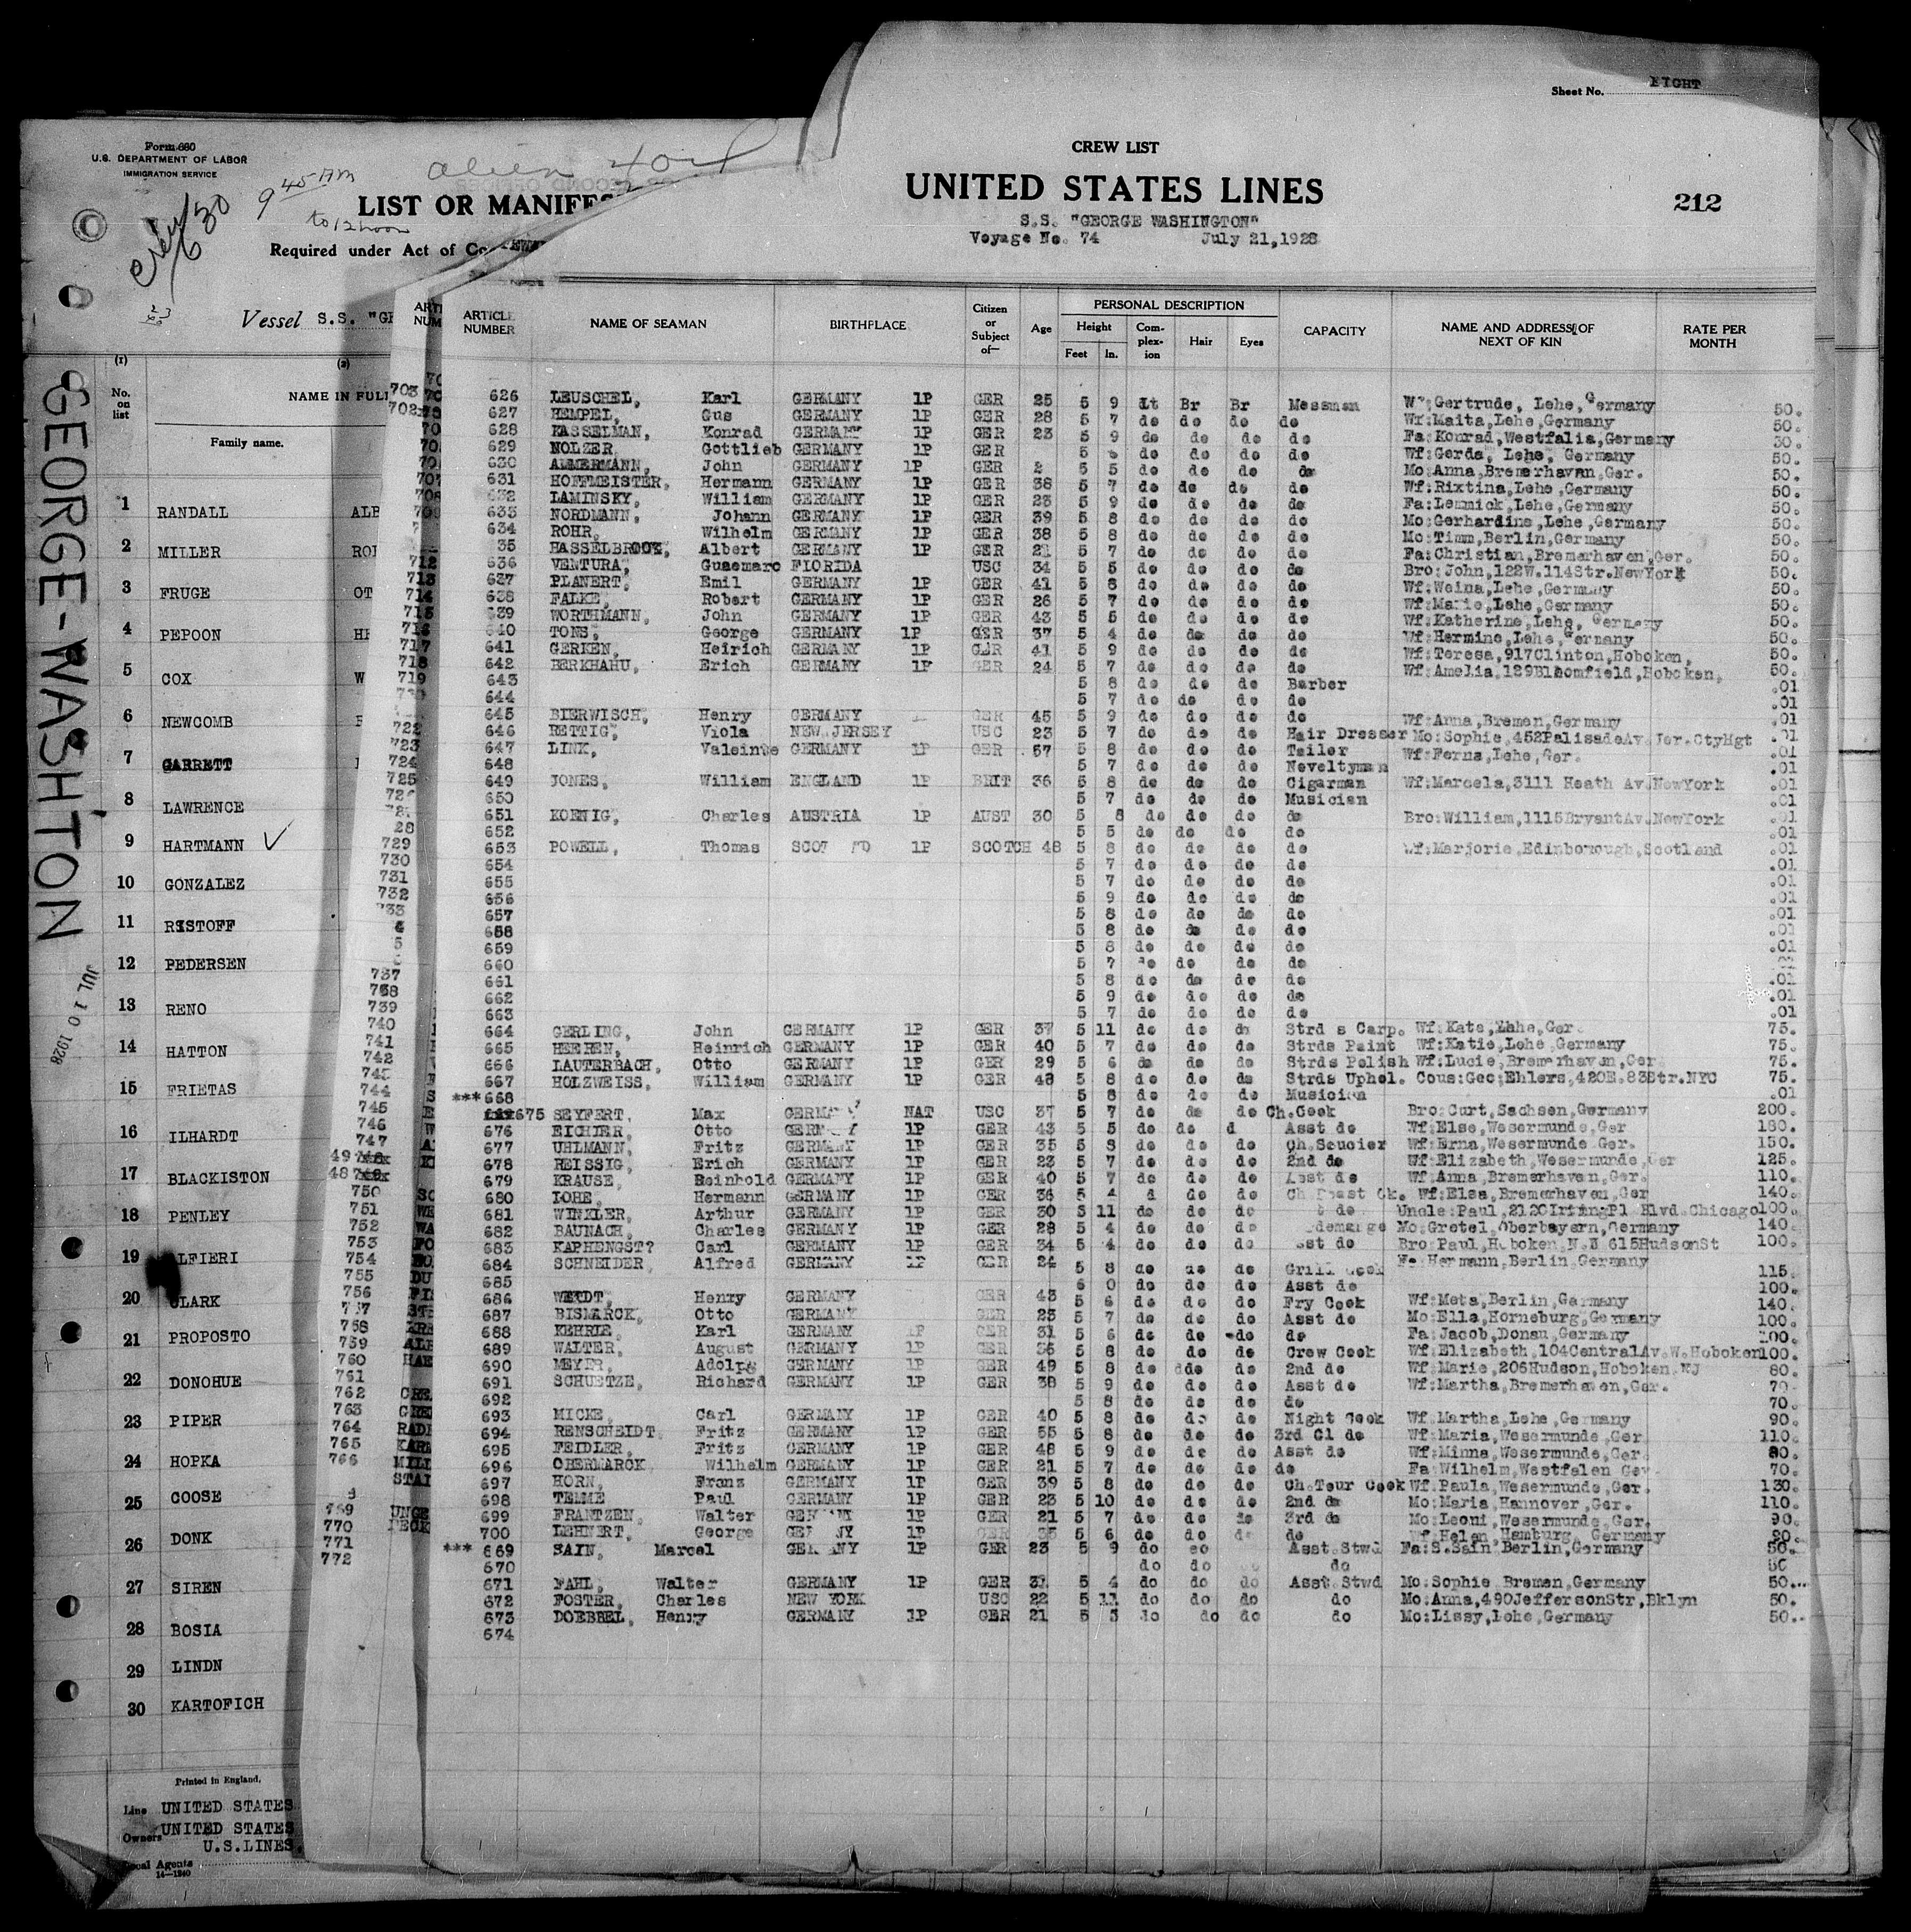 Sheet No. EIGHT
CREW LIST
UNITED STATES LINES
212
S.S. "GEORGE WASHINGTON"
Voyage No. 74 July 21,1928
Form 680
U.S. DEPARTMENT OF LABOR
IMMIGRATION SERVICE
9 45 AM
to 12 noon
alien
LIST OR MANIFES
Required under Act of Co
Vessel S.S. "GE
GEORGE-WASHTON
JUL 10 1928
(1) (2)
No. on list
NAME IN FULL
Family name.
1 RANDALL ALB
2 MILLER ROB
3 FRUGE OT
4 PEPOON
5 COX W
6 NEWCOMB
7 GARRETT
8 LAWRENCE
9 HARTMANN
10 GONZALEZ
11 RISTOFF
12 PEDERSEN
13 RENO
14 HATTON
15 FRIETAS
16 ILHARDT
17 BLACKISTON
18 PENLEY
19 LFIERI
20 CLARK
21 PROPOSTO
22 DONOHUE
23 PIPER
24 HOPKA
25 COOSE
26 DONK
27 SIREN
28 BOSIA
29 LINDN
30 KARTOFICH
Printed in England.
Line UNITED STATES
Owners UNITED STATES
U.S.LINES.
Local Agents
14—1240
ARTICLE NUMBER NAME OF SEAMAN BIRTHPLACE Citizen or Subject of— Age PERSONAL DESCRIPTION Height Feet In. Complexion Hair Eyes CAPACITY NAME AND ADDRESS OF NEXT OF KIN RATE PER MONTH
626 LEUSCHEL, Karl GERMANY 1P GER 25 5 9 Lt Br Br Messman Wf:Gertrude, Lehe,Germany 50.
627 HEMPEL, Gus GERMANY 1P GER 28 5 7 do do do do Wf:Maita,Lehe,Germany 50.
628 KASSELMAN, Konrad GERMANY 1P GER 23 5 9 do do do do Fa:Konrad,Westfalia,Germany 50.
629 NOLZER, Gottlieb GERMANY 1P GER 5 do do do do Wf:Gerda, Lehe, Germany 50.
630 AMMERMANN, John GERMANY 1P GER 5 5 do do do do Mo:Anna,Bremerhaven,Ger. 50.
631 HOFFMEISTER, Hermann GERMANY 1P GER 38 5 7 do do do do Wf:Rixtina,Lehe,Germany 50.
632 LAMINSKY, William GERMANY 1P GER 23 5 9 do do do do Fa:Lennick,Lehe,Germany 50.
633 NORDMANN, Johann GERMANY 1P GER 39 5 8 do do do do Mo:Gerhardine,Lehe,Germany 50.
634 ROHR, Wilhelm GERMANY 1P GER 38 5 8 do do do do Mo:Timm,Berlin,Germany 50.
35 HASSELBROOK, Albert GERMANY 1P GER 21 5 7 do do do do Fa:Christian,Bremerhaven,Ger. 50.
636 VENTURA, Guaemaro FLORIDA USC 34 5 5 do do do do Bro:John,122W.114Str.NewYork 50.
637 PLANERT, Emil GERMANY 1P GER 41 5 8 do do do do Wf:Weina,Lehe,Germany 50.
638 FALKE, Robert GERMANY 1P GER 26 5 7 do do do do Wf:Marie,Lehe,Germany 50.
639 WORTHMANN, John GERMANY 1P GER 43 5 5 do do do do Wf:Katherine,Lehe, Germany 50.
640 TONS, George GERMANY 1P GER 37 5 4 do do do do Wf:Hermine,Lehe,Germany 50.
641 GERKEN, Heirich GERMANY 1P GER 41 5 9 do do do do Wf:Teresa,917Clinton,Hoboken, 50.
642 BERKHAHU, Erich GERMANY 1P GER 24 5 7 do do do do Wf:Amelia,129Bloomfield,Hoboken, 50.
643 5 8 do do do Barber .01
644 5 7 do do do do .01
645 BIERWISCH, Henry GERMANY GER 45 5 9 do do do do Wf:Anna,Bremen,Germany .01
646 RETTIG, Viola NEW JERSEY USC 23 5 7 do do do Hair Dresser Mo:Sophie,452PalisadeAv.Jer.CtyHgt .01
647 LINK, Valeinte GERMANY 1P GER 57 5 8 do do do Tailor Wf:Ferna,Lehe,Ger. .01
648 5 7 do do do Noveltyman .01
649 JONES, William ENGLAND 1P BRIT 36 5 8 do do do Cigarman Wf:Marcela,3111 Heath Av.NewYork .01
650 5 7 do do do Musician .01
651 KOENIG, Charles AUSTRIA 1P AUST 30 5 8 do do do do Bro:William,1115BryantAv.NewYork .01
652 5 5 do do do do .01
653 POWELL, Thomas 1P SCOTCH 48 5 8 do do do do Wf:Marjorie,Edinborough,Scotland .01
654 5 7 do do do do .01
655 5 7 do do do do .01
656 5 9 do do do do .01
657 5 8 do do do do .01
658 5 8 do do do do .01
659 5 8 do do do do .01
660 5 7 do do do do
661 5 8 do do do do .01
662 5 9 do do do do .01
663 5 7 do do do do .01
664 GERLING, John GERMANY 1P GER 37 5 11 do do do Strd s Carp. Wf:Kate,Lehe,Ger. 75.
665 HEEREN, Heinrich GERMANY 1P GER 40 5 7 do do do Strds Paint Wf:Katie,Lehe,Germany 75.
666 LAUTERBACH, Otto GERMANY 1P GER 29 5 6 do do do Strds Polish Wf:Lucie,Bremerhaven,Ger 75.
667 HOLZWEISS, William GERMANY 1P GER 48 5 8 do do do Strds Uphol. Cous:Geo:Ehlers,420E.83Str.NYC 75.
***668 5 8 do do do Musician .01
675 SEYFERT, Max GERMANY NAT USC 37 5 7 do do do Ch.Cook Bro:Curt,Sachsen,Germany 200.
676 EICHLER, Otto GERMANY 1P GER 43 5 5 do do d Asst do Wf:Else,Wesermunde,Ger 180.
677 UHLMANN, Fritz GERMANY 1P GER 35 5 8 do do do Ch.Soucier Wf:Erna,Wesermunde Ger. 150.
678 REISSIG, Erich GERMANY 1P GER 23 5 7 do do do 2nd do Wf:Elizabeth,Wesermunde,Ger 125.
679 KRAUSE, Reinhold GERMANY 1P GER 40 5 7 do do do Asst do Wf:Anna,Bremerhaven,Ger. 110.
680 LOHE, Hermann GERMANY 1P GER 36 5 4 d do do Ch Roast Ck. Wf:Elsa,Bremerhaven,Ger 140.
681 WINKLER, Arthur GERMANY 1P GER 30 5 11 do do do do Uncle:Paul,2120IrvingPl Blvd.Chicago 100.
682 BAUNACH, Charles GERMANY 1P GER 28 5 4 do do do Mo:Gretel,Oberbayern,Germany 140.
683 KAPHENGST? Carl GERMANY 1P GER 34 5 4 do do do sst do Bro:Paul,Hoboken,N.J 615HudsonSt 100.
684 SCHNEIDER, Alfred GERMANY 1P GER 24 5 8 do do do Grill Cook Fa:Hermann,Berlin,Germany 115.
685 6 0 do do do Asst do 100.
686 WEIDT, Henry GERMANY GER 43 5 6 do do do Fry Cook Wf:Meta,Berlin,Germany 140.
687 BISMARCK, Otto GERMANY GER 25 5 7 do do do Asst do Mo:Ella,Horneburg,Germany 100.
688 KEHRLE, Karl GERMANY 1P GER 31 5 6 do do do do Fa:Jacob,Donau,Germany 100.
689 WALTER, August GERMANY 1P GER 36 5 8 do do do Crew Cook Wf:Elizabeth,104CentralAv.W.Hoboken 100.
690 MEYER, Adolpg GERMANY 1P GER 49 5 8 do ddo do 2nd do Wf:Marie,206Hudson,Hoboken.NJ 80.
691 SCHUETZE, Richard GERMANY 1P GER 38 5 9 do do do Asst do Wf:Martha,Bremerhaven,Ger. 70.
692 5 8 do do do do 70.
693 MICKE, Carl GERMANY 1P GER 40 5 8 do do do Night Cook Wf.Martha,Lehe,Germany 90.
694 RENSCHEIDT, Fritz GERMANY 1P GER 55 5 8 do do do 3rd Cl do Wf:Maria,Wesermunde,Ger 110.
695 FEIDLER, Fritz GERMANY 1P GER 48 5 9 do do do Asst do Wf:Minna,Wesermunde,Ger. 80.
696 OBERMARCK Wilhelm GERMANY 1P GER 21 5 7 do do do do Fa:Wilhelm,Westfalen Ger. 70.
697 HORN, Franz GERMANY 1P GER 39 5 8 do do do Ch.Tour Cook Wf:Paula,Wesermunde,Ger. 130.
698 TEMME Paul GERMANY 1P GER 23 5 10 do do do 2nd do Mo:Maria,Hannover,Ger. 110.
699 FRANTZEN, Walter GERMANY 1P GER 21 5 7 do do do 3rd do Mo:Leoni,Wesermunde,Ger. 90.
700 LEHNERT, George GERMANY 1P GER 35 5 6 do do do do Wf:Helen,Hamburg, Germany 80.
*** 669 SAIN, Marcel GERMANY 1P GER 23 5 9 do eo Asst.Stwd Fa:S.Sain,Berlin,Germany 50.
670 do do do 50
671 FAHL, Walter GERMANY 1P GER 31 5 4 do do do Asst Stwd Mo:Sophie Bremen,Germany 50.
672 FOSTER, Charles NEW YORK USC 22 5 11 do do do do Mo:Anna,490JeffersonStr,Bklyn 50.
673 DOEBBEL, Henry GERMANY 1P GER 21 5 5 do do do do Mo:Lissy,Lehe,Germany 50.
674